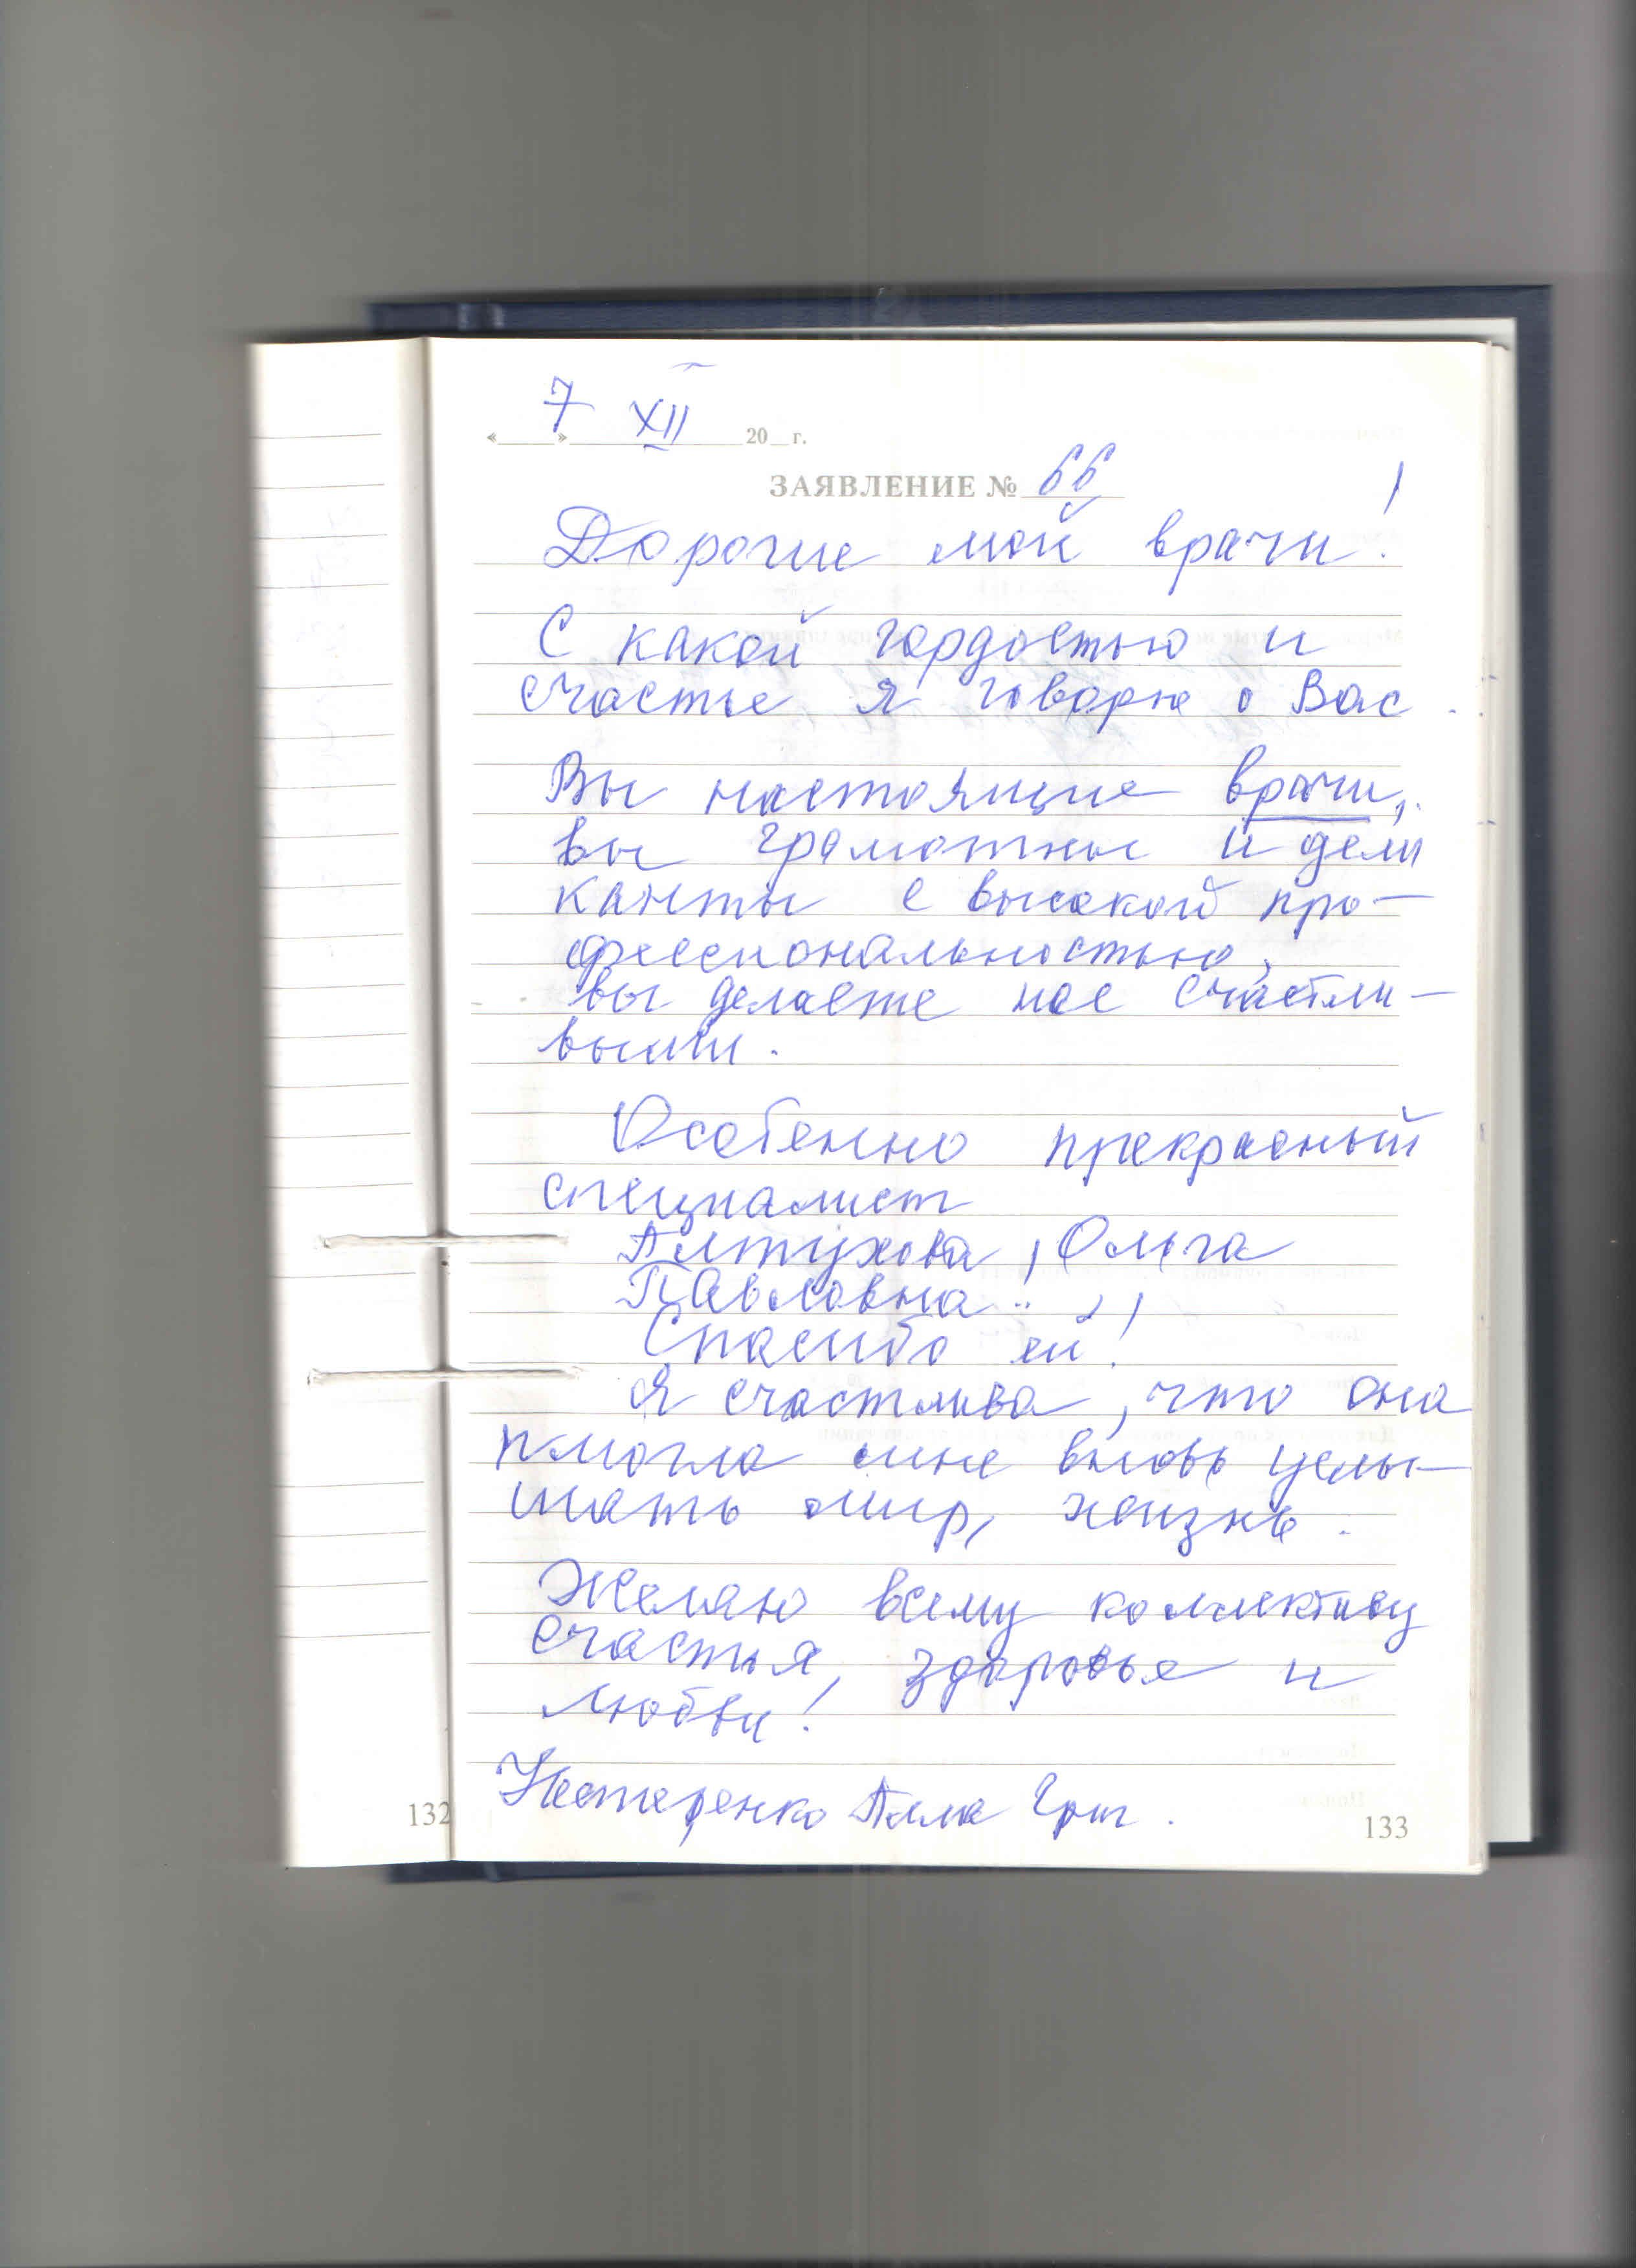 7 XII
« » 20 г.
ЗАЯВЛЕНИЕ № 66
Дорогие мой врачи!
С какой гордостью и
счастье я говорю о Вас.
Вы настоящие врачи,
вы грамотные и дели
канты с высокой про-
фессиональностью,
вы делаете нас счастли-
выми.
Особенно прекрасный
специалист
Алтухова, Ольга
Павловна!
Спасибо ей!
Я счастлива, что она
пмогла мне вновь услы-
шать мир, жизнь.
Желаю всему коллективу
счастья, здоровье и
любви!
Нестеренко Алла Григ.
132
133